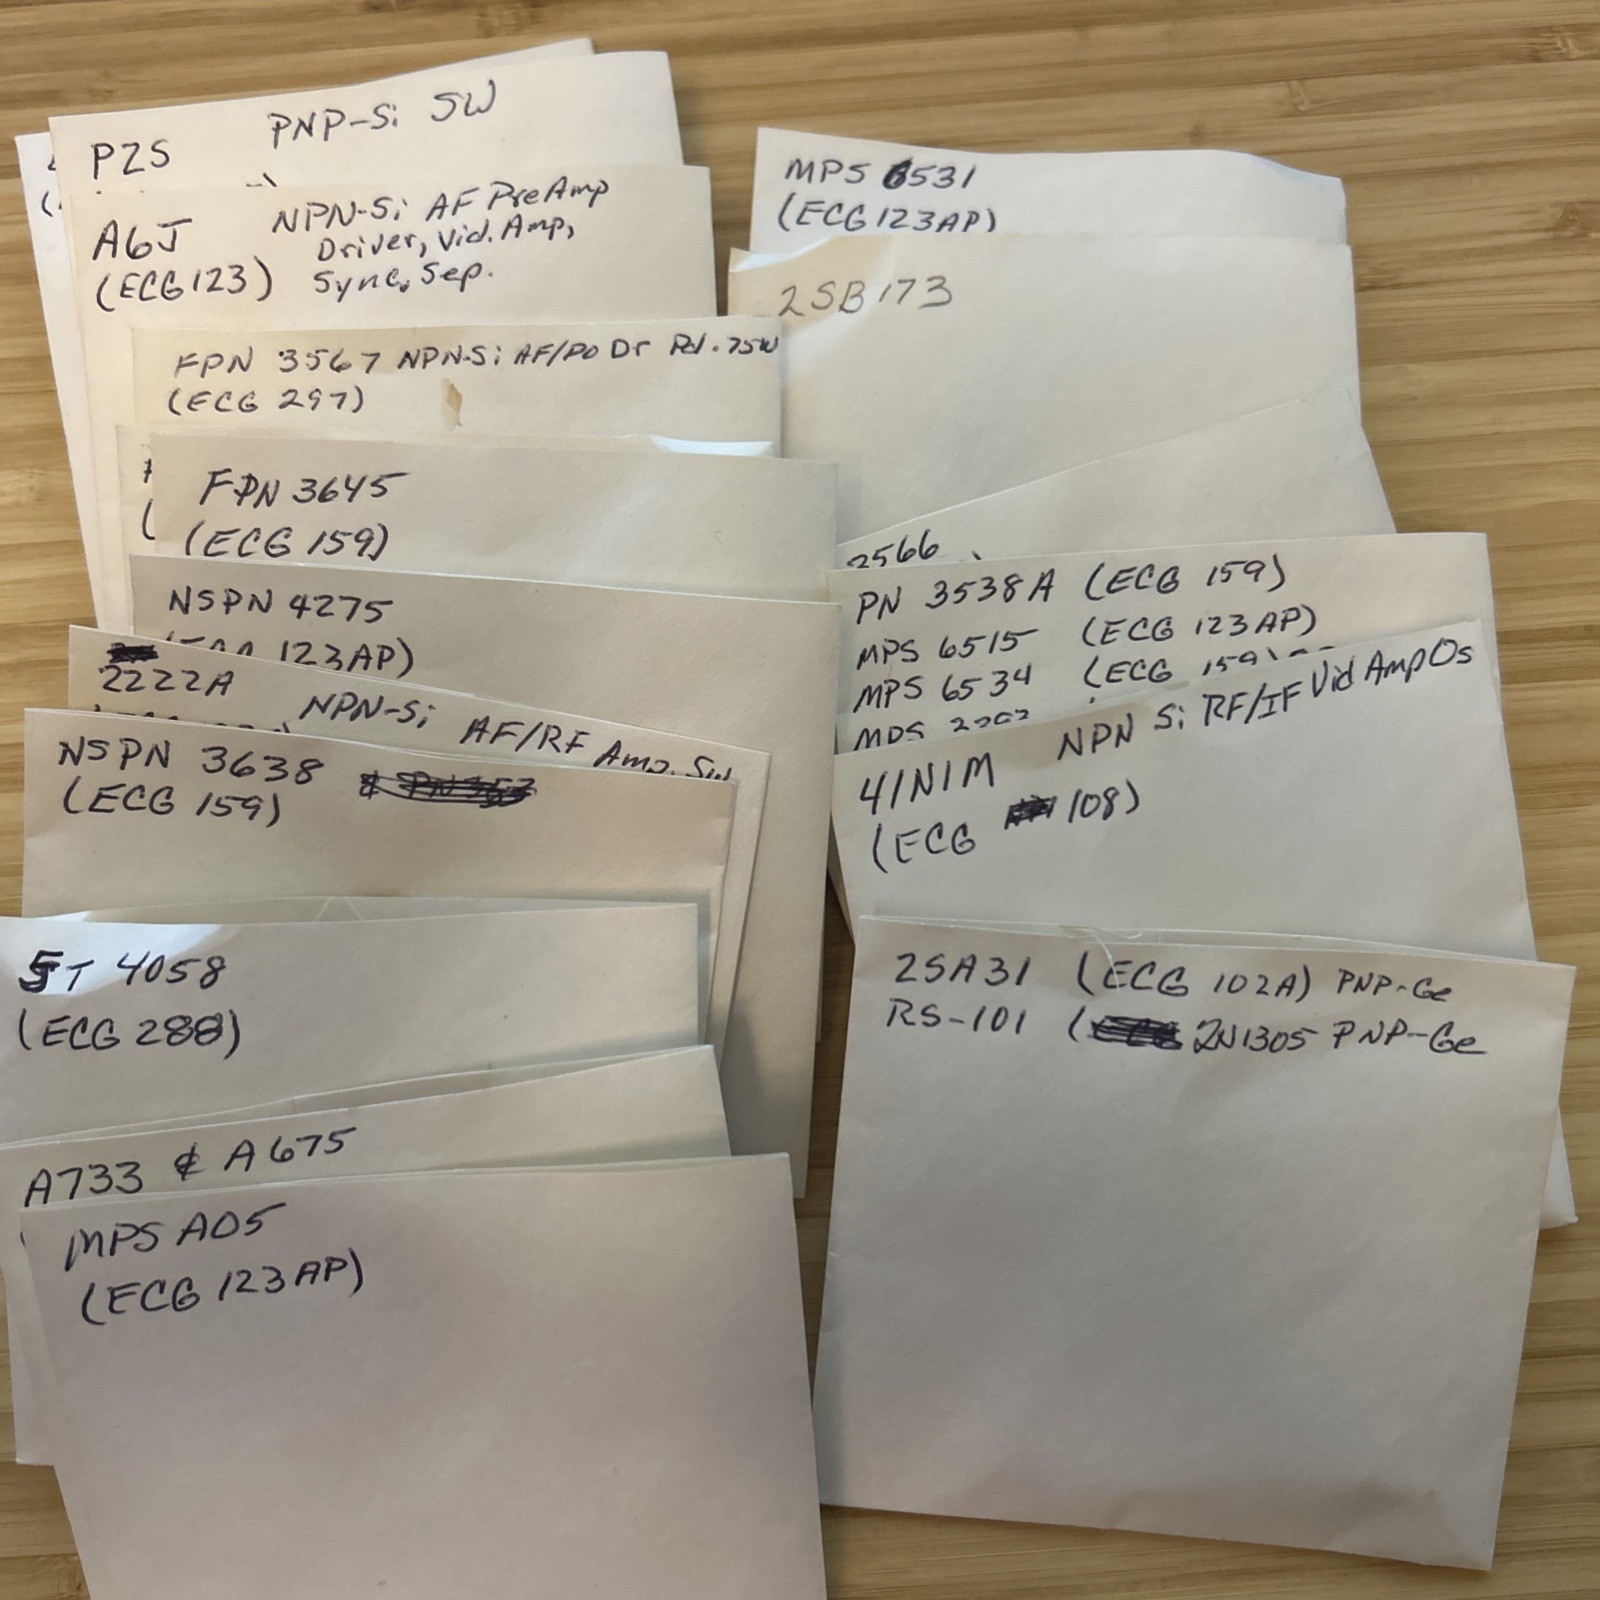 PZS PNP-Si SW
A6J NPN-Si AF PreAmp
Driver, Vid. Amp,
(ECG 123) Sync. Sep.
FPN 3567 NPN-Si AF/PO Dr Pd .75W
(ECG 297)
FPN 3645
(ECG 159)
NSPN 4275
123AP)
2222A NPN-Si AF/RF Amp. Sw
NSPN 3638 &
(ECG 159)
ST 4058
(ECG 288)
A733 & A675
MPS A05
(ECG 123AP)
MPS 6531
(ECG 123AP)
2SB173
2566
PN 3538A (ECG 159)
MPS 6515 (ECG 123AP)
MPS 6534 (ECG 159)
41N1M NPN Si RF/IF Vid Amp Os
(ECG 108)
2SA31 (ECG 102A) PNP-Ge
RS-101 ( 2N1305 PNP-Ge